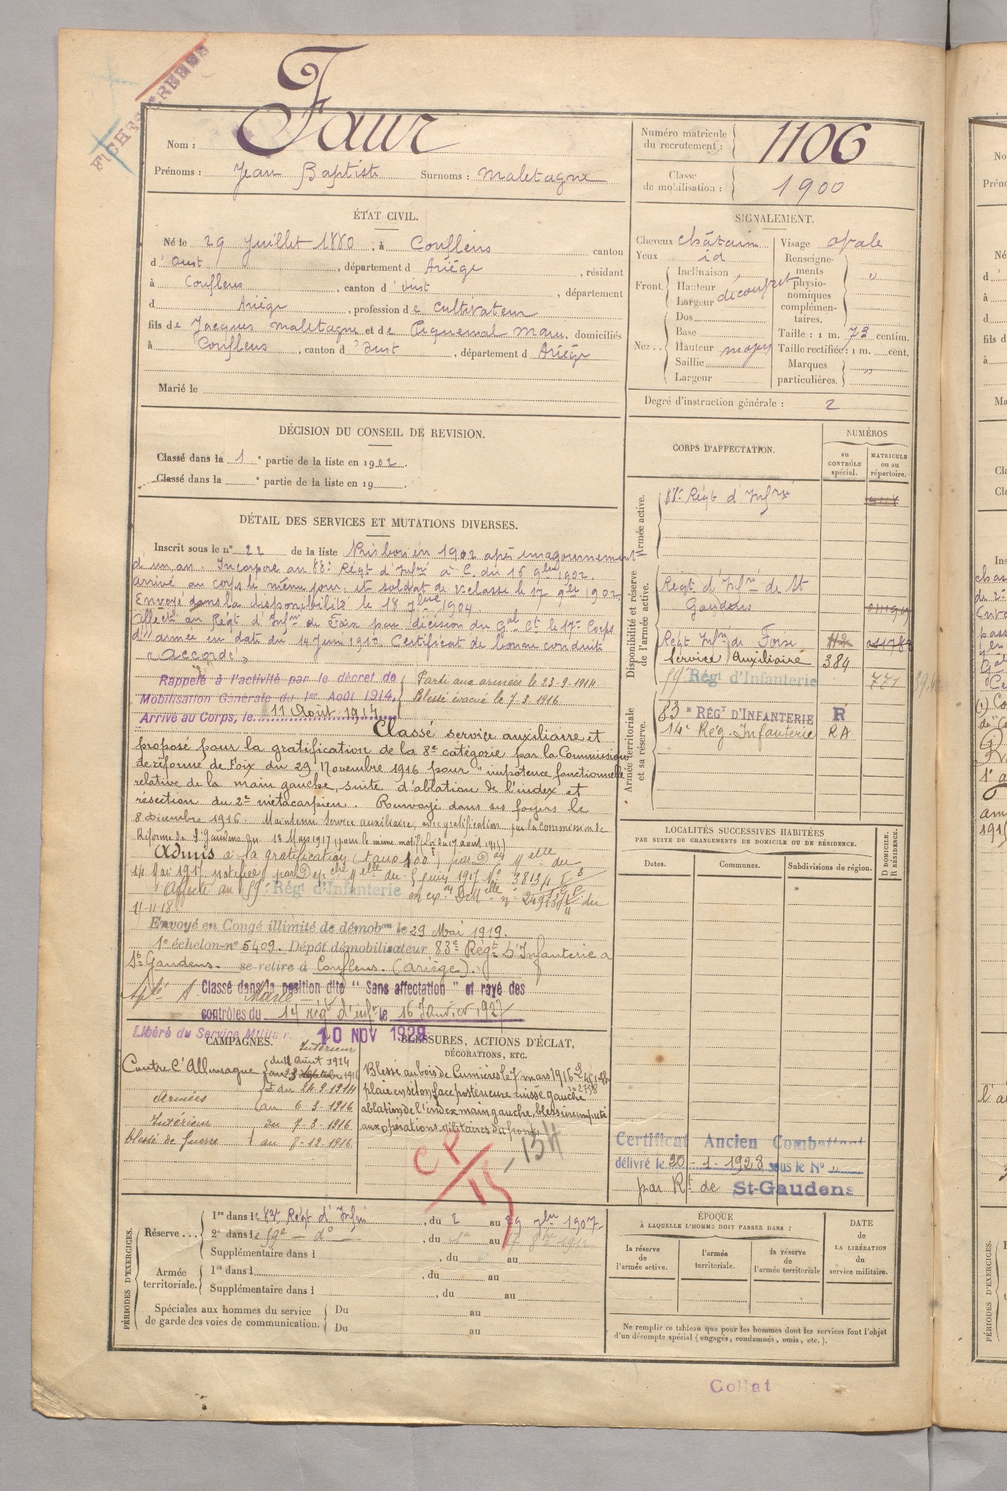 FICHES CRÉÉES
Nom : Faur
Prénoms : Jean Baptiste Surnoms : Maletagne
Numéro matricule du recrutement : 1106
Classe de mobilisation : 1900
ÉTAT CIVIL.
Né le 29 Juillet 1880, à Couflens canton
d'Oust, département d Ariège, résidant
à Couflens, canton d'Oust, département
d Ariège, profession de Cultivateur
fils de Jacques Maletagne et de Piquemal Marie, domiciliés
à Couflens, canton d'Oust, département d Ariège
Marié le
SIGNALEMENT.
Cheveux châtain
Yeux id
Front Inclinaison
Hauteur
Largeur découvert
Nez Dos
Base
Hauteur moyen
Saillie
Largeur
Visage ovale
Renseignements physionomiques complémentaires. "
Taille : 1 m. 73 centim.
Taille rectifiée : 1 m. cent.
Marques particulières. "
Degré d'instruction générale : 2
DÉCISION DU CONSEIL DE REVISION.
Classé dans la 1e partie de la liste en 1902.
Classé dans la e partie de la liste en 19
DÉTAIL DES SERVICES ET MUTATIONS DIVERSES.
Inscrit sous le n° 22 de la liste en 1902 après un ajournement
d'un an. Incorporé au 88e Régt d'Infrie à C. du 16 9bre 1902.
arrivé au corps le même jour, et soldat de 2e classe le 17 9bre 1902.
Envoyé dans la disponibilité le 18 7bre 1904.
Affecté au Régt d'Infie de Foix par décision du Gal Ct le 17e Corps
d'armée en date du 14 Juin 1910 Certificat de bonne conduite
"Accordé"
Rappelé à l'activité par le décret de
Mobilisation Générale du 1er Août 1914.
Arrivé au Corps, le 11 Août 1914
Parti aux armées le 23-9-1914
Blessé évacué le 7-3-1916
Classé service auxiliaire et
proposé pour la gratification de la 8e catégorie par la Commission
de réforme de Foix du 29 Novembre 1916 pour "impotence fonctionnelle
relative de la main gauche, suite d'ablation de l'index et
résection du 2e métacarpien. Renvoyé dans ses foyers le
8 décembre 1916. Maintenu Service auxiliaire, avec gratification par la Commission de
Réforme de St Gaudens du 18 Mai 1917 (pour le même motif)
Admis à la gratification
Affecté au Régt d'Infanterie
11-11-18.
Envoyé en Congé illimité de démobon le 29 Mai 1919.
1e échelon n° 5409. Dépôt démobilisateur 83e Régt d'Infanterie à
St Gaudens. se retire à Couflens. (Ariège).
Classé dans la position dite "Sans affectation" et rayé des
contrôles du 14e régt d'infie le 16 Janvier 1927
Libéré du Service Militaire 10 NOV 1929
CORPS D'AFFECTATION.
NUMÉROS
au CONTRÔLE spécial.
MATRICULE ou au répertoire.
Armée active.
88e Régt d'Infrie
Disponibilité et réserve de l'armée active.
Régt d'Infie de St Gaudens
Régt Infie de Foix
Service Auxiliaire 384
Régt d'Infanterie 771
Armée territoriale et sa réserve.
83e RÉGT D'INFANTERIE R
14e Rég. Infanterie RA
LOCALITÉS SUCCESSIVES HABITÉES
PAR SUITE DE CHANGEMENTS DE DOMICILE OU DE RÉSIDENCE.
Dates. Communes. Subdivisions de région.
D DOMICILE. R RÉSIDENCE.
CAMPAGNES.
Contre l'Allemagne
Intérieur du 11 Août 1914
Armées du 24-9-1914
au 6-3-1916
Intérieur du 7-3-1916
blessé de guerre au 8-12-1916
BLESSURES, ACTIONS D'ÉCLAT, DÉCORATIONS, ETC.
Blessé au bois de Cumières le 7 mars 1916
plaie en séton face postérieure cuisse gauche
ablation de l'index main gauche, blessure imputée
aux opérations militaires du front
CP
Certificat Ancien Combattant
délivré le 20-1-1928 sous le N°
par Rt de St-Gaudens
PÉRIODES D'EXERCICES.
Réserve 1re dans le 88e Régt d'Infrie, du 2 au 29 7bre 1907
2e dans le 59e — d° —, du au
Supplémentaire dans l , du au
Armée territoriale. 1re dans l , du au
Supplémentaire dans l , du au
Spéciales aux hommes du service de garde des voies de communication. Du au
Du au
ÉPOQUE
À LAQUELLE L'HOMME DOIT PASSER DANS :
la réserve de l'armée active. l'armée territoriale. la réserve de l'armée territoriale
DATE DE LA LIBÉRATION du service militaire.
Ne remplir ce tableau que pour les hommes dont les services font l'objet
d'un décompte spécial (engagés, condamnés, omis, etc.).
Collat